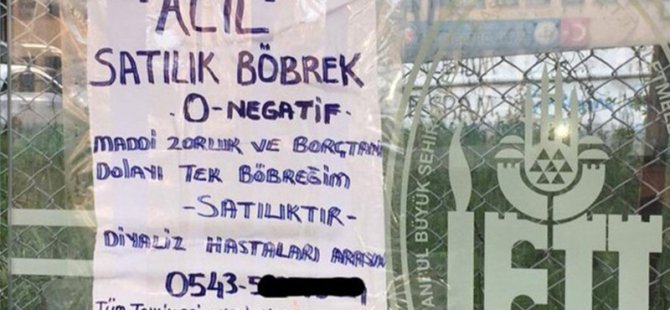 "ACİL"
SATILIK BÖBREK
. O-NEGATİF .
MADDİ ZORLUK VE BORÇTAN
DOLAYI TEK BÖBREĞİM
-SATILIKTIR-
DİYALİZ HASTALARI ARASIN
0543-5
Tüm
İETT